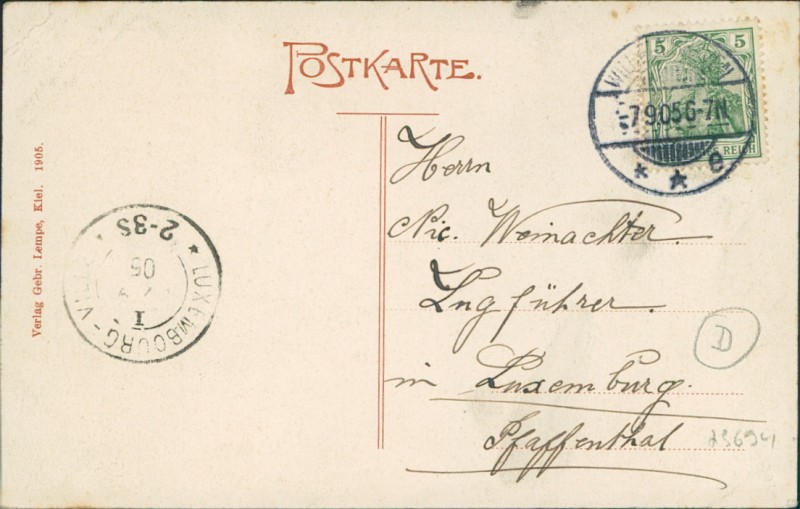 POSTKARTE.
5 5
REICH
7.9.05 6-7N
* * e
Herrn
Nic. Weinachter.
Zugführer.
in Luxemburg.
Pfaffenthal
D
Verlag Gebr. Lempe, Kiel. 1905.
* LUXEMBOURG-VILLE *
2-3S
05
I